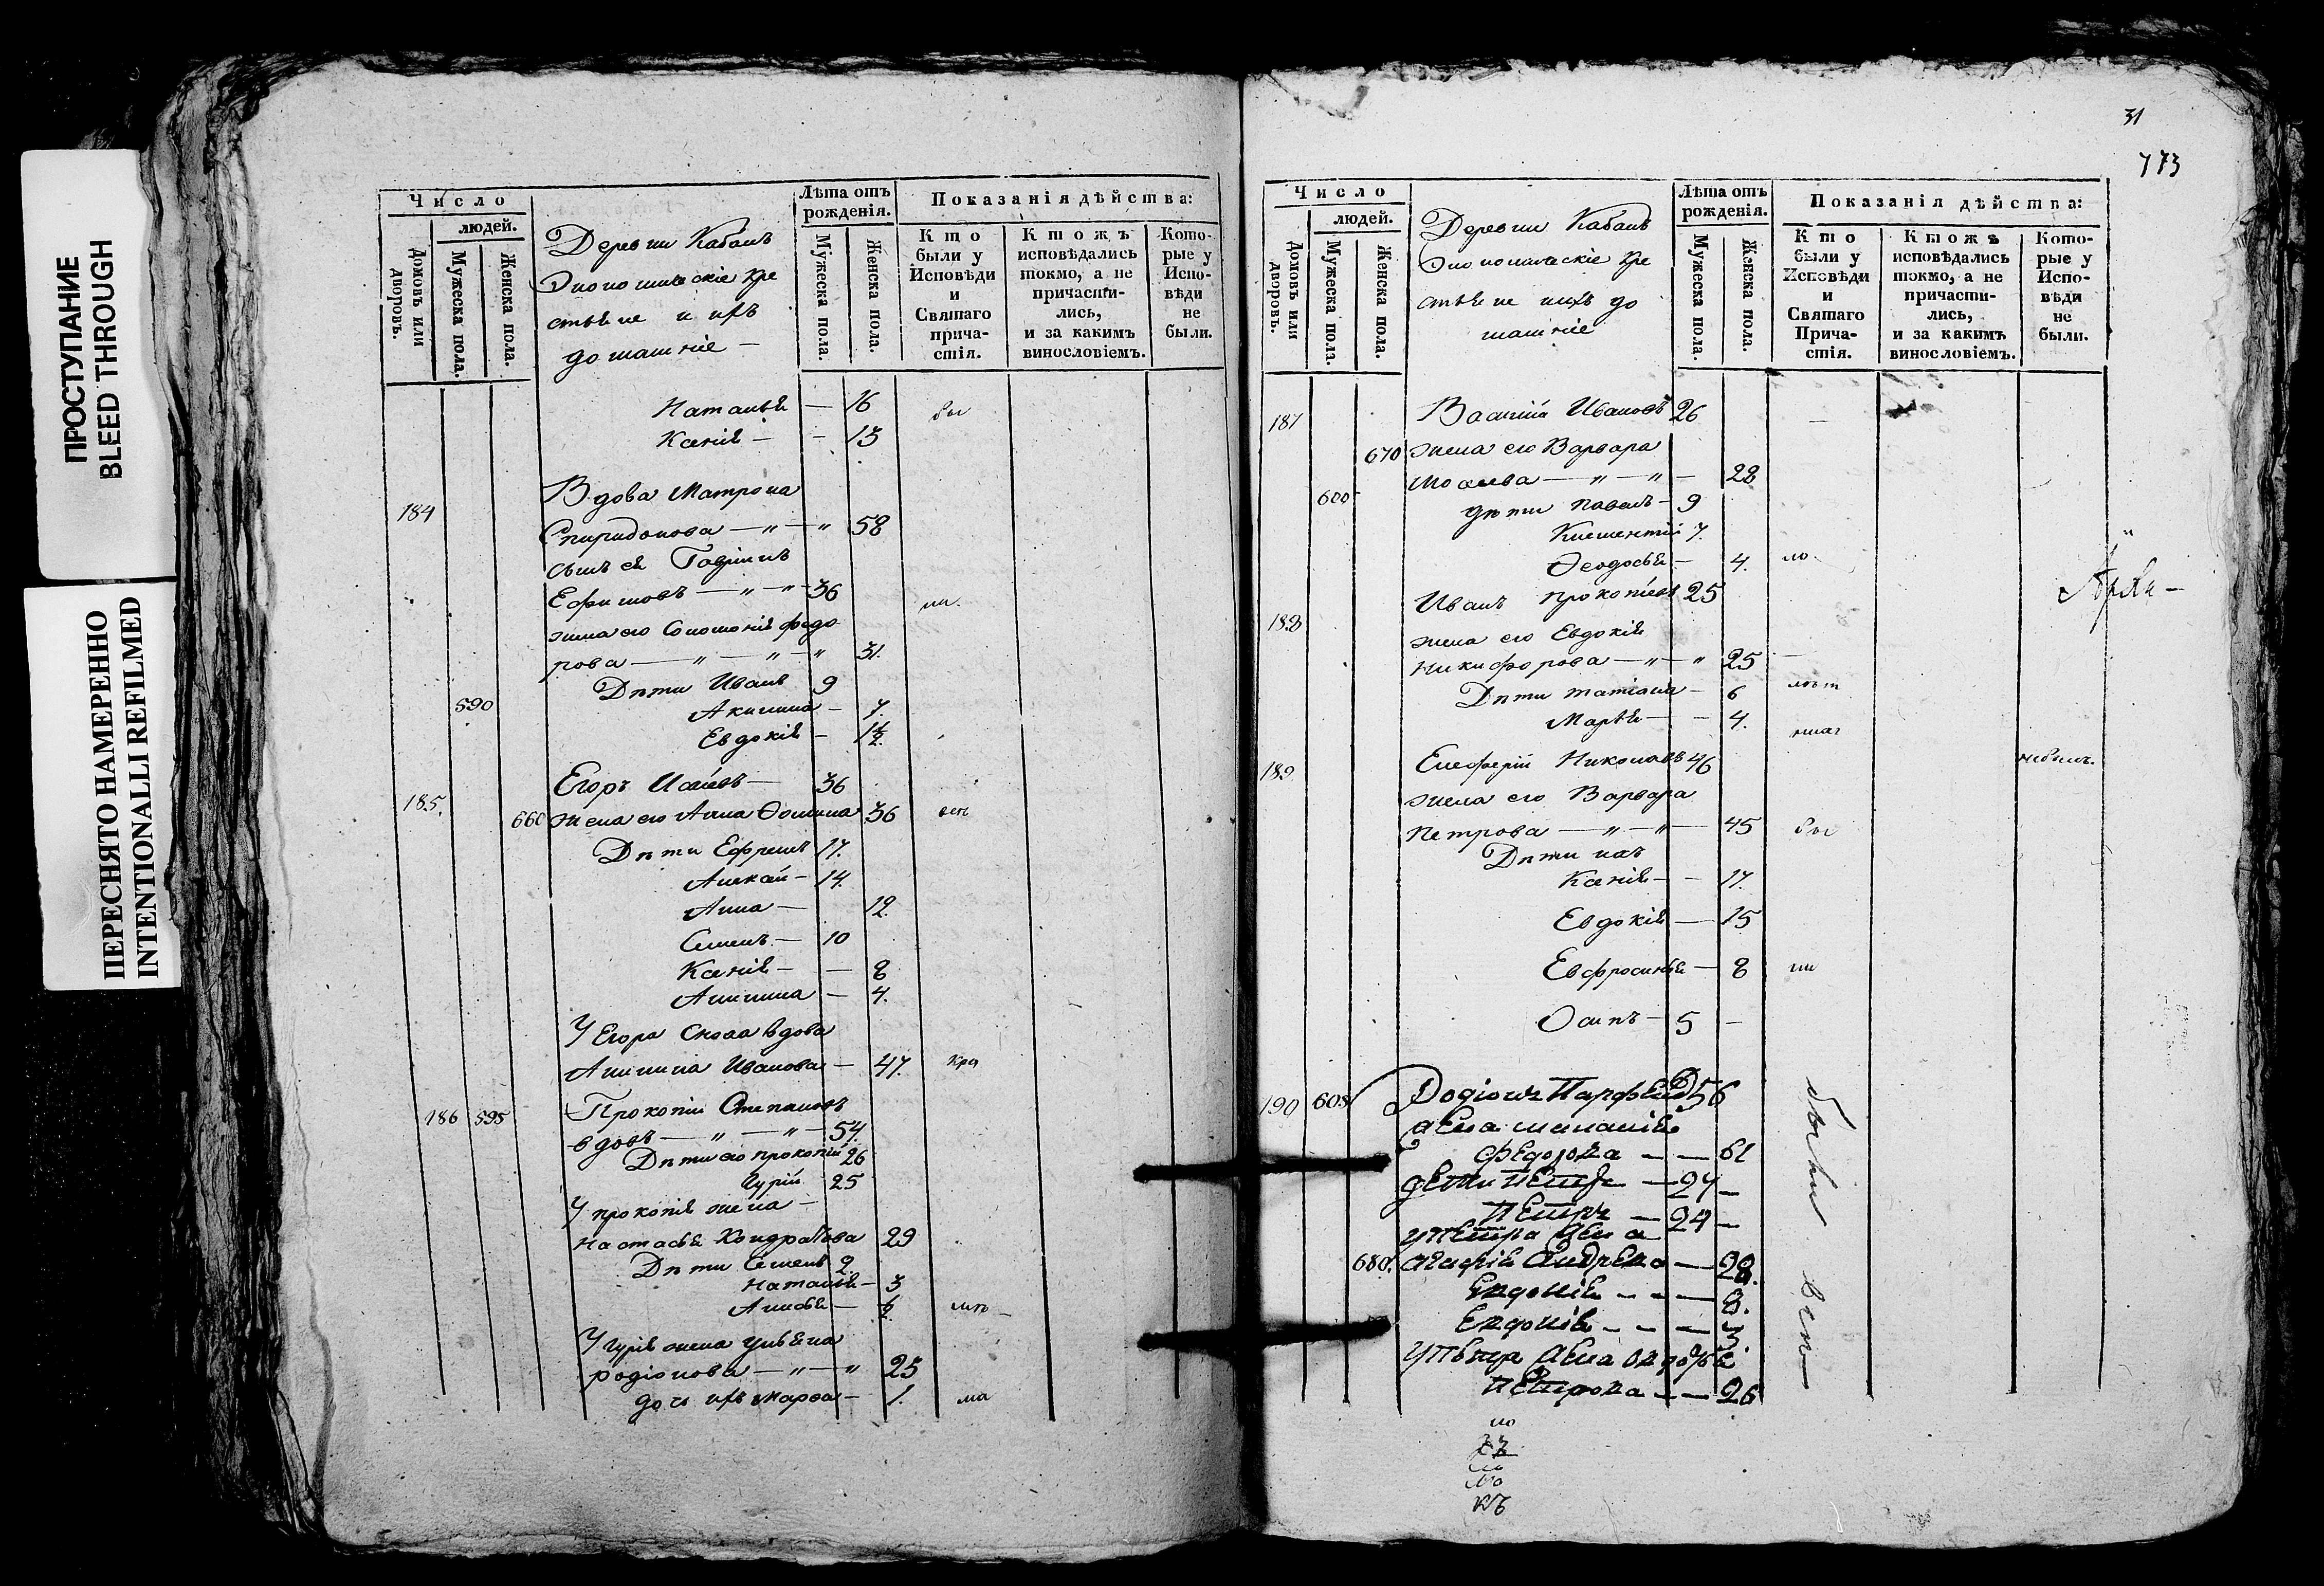 ПРОСТУПАНИЕ
BLEED THROUGH
ПЕРЕСНЯТО НАМЕРЕННО
INTENTIONALLI REFILMED
Число
людей.
Домовъ или дворовъ.
Мужеска пола.
Женска пола.
Деревни Кабанъ
Экономическіе кре
стьяне и ихъ
домашніе —
Лѣта отъ рожденія.
Мужеска пола.
Женска пола.
Показанія дѣйства:
Кто были у Исповѣди и Святаго причастія.
Ктожъ исповѣдались токмо, а не причастились, и за какимъ винословіемъ.
Которые у Исповѣди не были.
Наталья — 16 бы
Ксенія — — 13
184 Вдова Матрона
Спиридонова — " — " 58
сынъ ея Гаврiилъ
Ефимовъ — " — " — 36 ли.
жена его Соломонія Федо
рова — " — " — " 31.
Дѣти Иванъ 9
590 Акилина — 7.
Евдокія — 1½
Егоръ Исаевъ — 36
185. 660 жена его Анна Фомина 36 всѣ
Дѣти Ефремъ 17.
Алексѣй — 14.
Анна — 12.
Семенъ — 10
Ксенія — — 8
Акилина — 4.
У Егора сноха вдова
Акилина Иванова — 47. кра
186 595 Прокопій Степановъ
вдовъ — " — " — 54.
Дѣти его Прокопій 26
Гурій 25
У Прокопія жена —
Настасья Кондратова 29
Дѣти Семенъ 9.
Наталія — 3
Анисья — ½ мѣ —
У Гурія жена Ульяна
Родіонова — " — " 25
дочь ихъ Марѳа — 1. ма
31
773
Число
людей.
Домовъ или дворовъ.
Мужеска пола.
Женска пола.
Деревни Кабанъ
Экономическіе кре
стьяне ихъ до
машніе
Лѣта отъ рожденія.
Мужеска пола.
Женска пола.
Показанія дѣйства:
Кто были у Исповѣди и Святаго Причастія.
Ктожъ исповѣдались токмо, а не причастились, и за какимъ винословіемъ.
Которые у Исповѣди не были.
187 Василій Ивановъ 26 —
670 жена его Варвара
Моисеева — " — " — 28
600 дѣти Павелъ — 9
Климентій 7.
Ѳеодосья — 4. ло
188 Иванъ Прокопіевъ 25
жена его Евдокія
Никифорова — " — " 25 —
Дѣти Татіана — 6
Марья — — 4.
189 Елеферій Николаевъ 46 небылъ.
жена его Варвара
Петрова — " — " — 45 бы
Дѣти ихъ
Ксенія — — 17.
Евдокія — 15
Евфросинья — 8 ли
Осипъ — 5 —
190 605 Родіонъ Парфеновъ 56
Федорова — — 61
Петръ — 24 —
680. Андрева — 28.
Евдокія — — — 8.
Евдокія — — — 3
Петрова — — 26
были всѣ